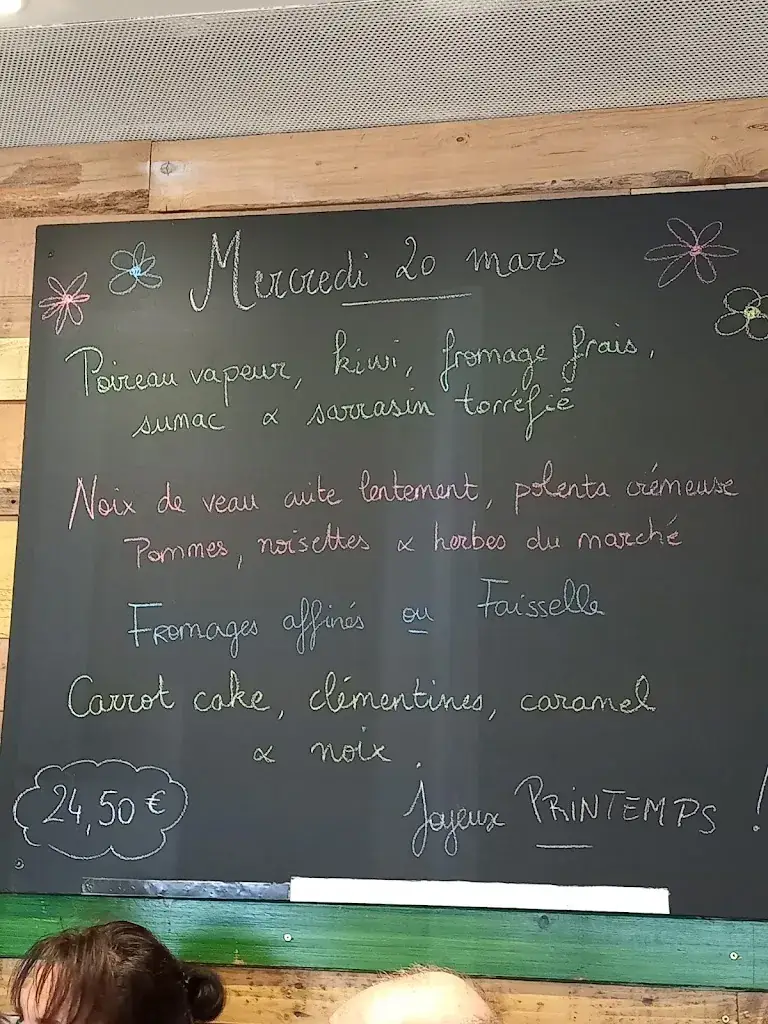 Mercredi 20 mars
Poireau vapeur, kiwi, fromage frais,
sumac & sarrasin torréfié
Noix de veau cuite lentement, polenta crémeuse
Pommes, noisettes & herbes du marché
Fromages affinés ou Faisselle
Carrot cake, clémentines, caramel
& noix.
24,50 €
Joyeux PRINTEMPS !